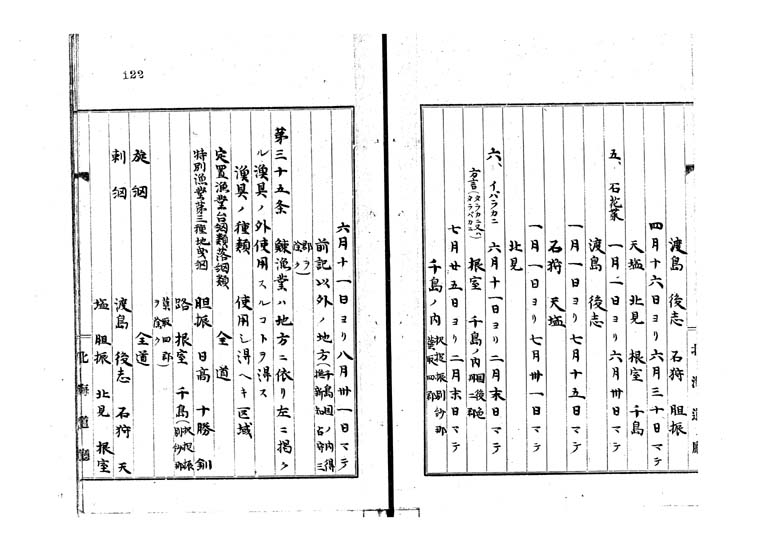 渡島 後志 石狩 胆振
四月十六日ヨリ六月三十日マデ
天塩 北見 根室 千島
五、石花菜 一月一日ヨリ六月卅日マデ
渡島 後志
一月一日ヨリ七月十五日マデ
石狩 天塩
一月一日ヨリ七月卅一日マデ
北見
六、イバラカニ 六月十一日ヨリ二月末日マデ
方言(タラバカニ又ハタラバカニ) 根室 千島ノ内国後 二郡
七月廿五日ヨリ二月末日マデ
千島ノ内 択捉振別紗那蘂取四郡
北海道廳
122
六月十一日ヨリ八月卅一日マデ
前記以外ノ地方(千島国ノ内得撫新知占守三郡ヲ除ク)
第三十五条 鰊漁業ハ地方ニ依リ左ニ掲ク
ル漁具ノ外使用スルコトヲ得ス
漁具ノ種類 使用シ得ヘキ区域
定置漁業台網類落網類 全道
特別漁業第三種地曳網 胆振 日高 十勝 釧
路 根室 千島(択捉振別紗那蘂取四郡ヲ除ク)
旋網 全道
刺網 渡島 後志 石狩 天
塩 胆振 北見 根室
北海道廳